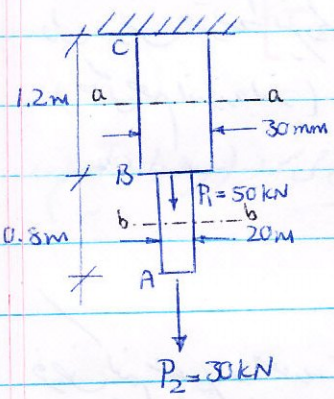 C
1.2m
a a
30mm
B
P₁=50kN
b b
0.8m
20m
A
P₂=30kN